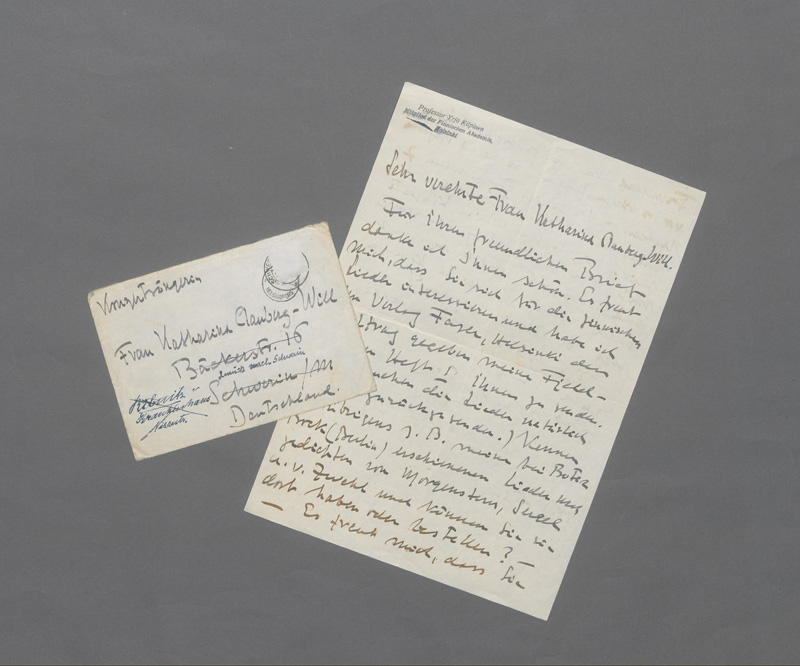 Konzertsängerin
Frau Katharina Clauberg-Will
Bäckerstr. 16
zurück nach Schwerin
Schwerin/M
Ribnitz
Krankenhaus
Deutschland.
Professor Yrjö Kilpinen
Mitglied der Finnischen Akademie,
Helsinki
Sehr verehrte Frau Katharina Clauberg-Will.
Für Ihren freundlichen Brief
danke ich Ihnen schön. Es freut
mich, dass Sie sich für die finnischen
Lieder interessieren und habe ich
Verlag Fazer, Helsinki den
ftrag gegeben meine Fjeld-
Heft 5 Ihnen zu senden.
die Lieder natürlich
zurückzusenden.) Kennen
übrigens z. B. meine bei Bote &
Bock (Berlin) erschienenen Lieder nach
gedichten von Morgenstern, Sergel
u. v. Zwehl und können Sie sie
dort haben oder bestellen?
— Es freut mich, dass Sie